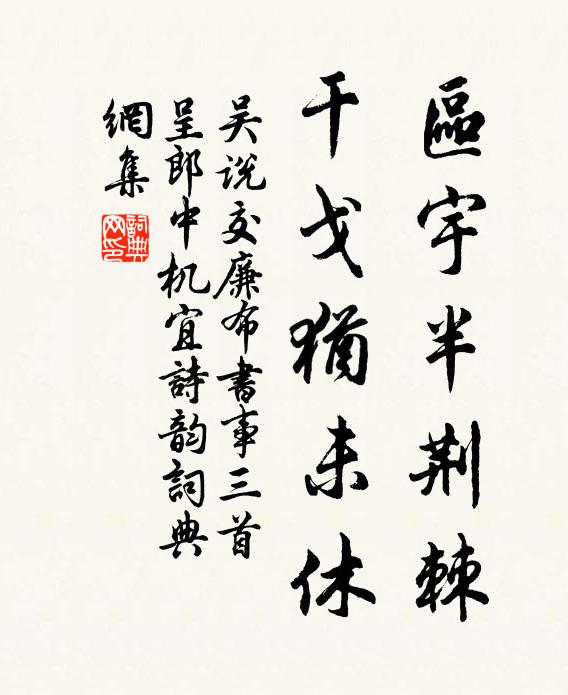 區宇半荆棘
干戈猶未休
吴说交廉布書事三首
呈郎中机宜詩韵詞典
網集
詞典
网印